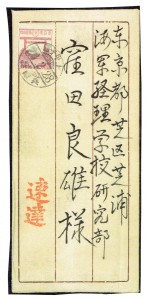 东京都芝区芝浦
海军経理学校研究部
窪田良雄様
速達